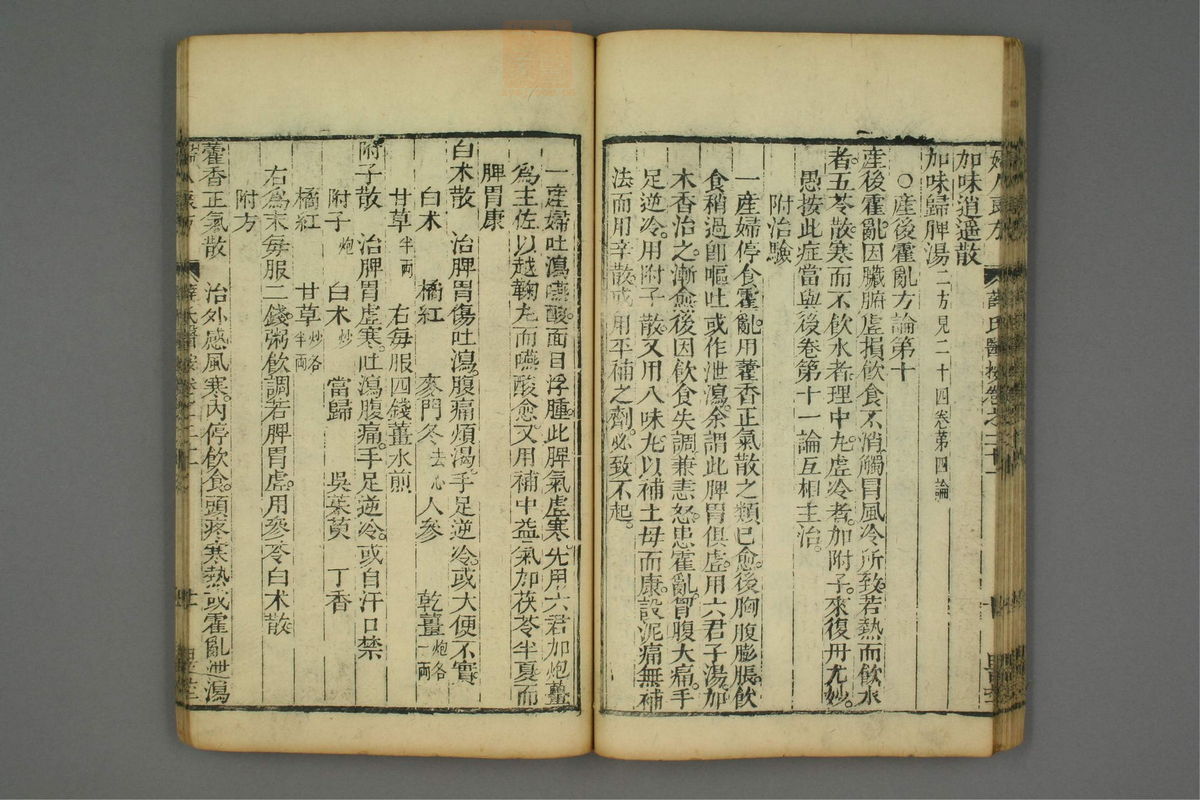 加味逍遥散
加味歸脾湯二方見二十四卷第四論
○產後霍亂方論第十
產後霍亂因臟腑虛損飲食不消觸冒風冷所致若熱而飲水
者五苓散寒而不飲水者理中丸虛冷者加附子來復丹尤妙
愚按此症當與後卷第十一論互相主治
附治驗
一產婦停食霍亂用藿香正氣散之類已愈後胸腹膨脹飲
食稍過卽嘔吐或作泄瀉余謂此脾胃俱虛用六君子湯加
木香治之漸愈後因飲食失調兼恚怒患霍亂胷腹大痛手
足逆冷用附子散又用八味丸以補土母而康設泥痛無補
法而用辛散或用平補之劑必致不起
一產婦吐瀉嚥酸面目浮腫此脾氣虛寒先用六君加炮薑
爲主佐以越鞠丸而嚥酸愈又用補中益氣加茯苓半夏而
脾胃康
白术散　治脾胃傷吐瀉腹痛煩渴手足逆冷或大便不實
白术　橘紅　麥門冬去心　人參　乾薑炮各一兩
甘草半兩　右每服四錢薑水煎
附子散　治脾胃虛寒吐瀉腹痛手足逆冷或自汗口禁
附子炮　白术炒　當歸　吳茱萸　丁香
橘紅　甘草炒各半兩
右爲末每服二錢粥飲調若脾胃虛用參苓白术散
附方
藿香正氣散　治外感風寒內停飲食頭疼寒熱或霍亂泄瀉